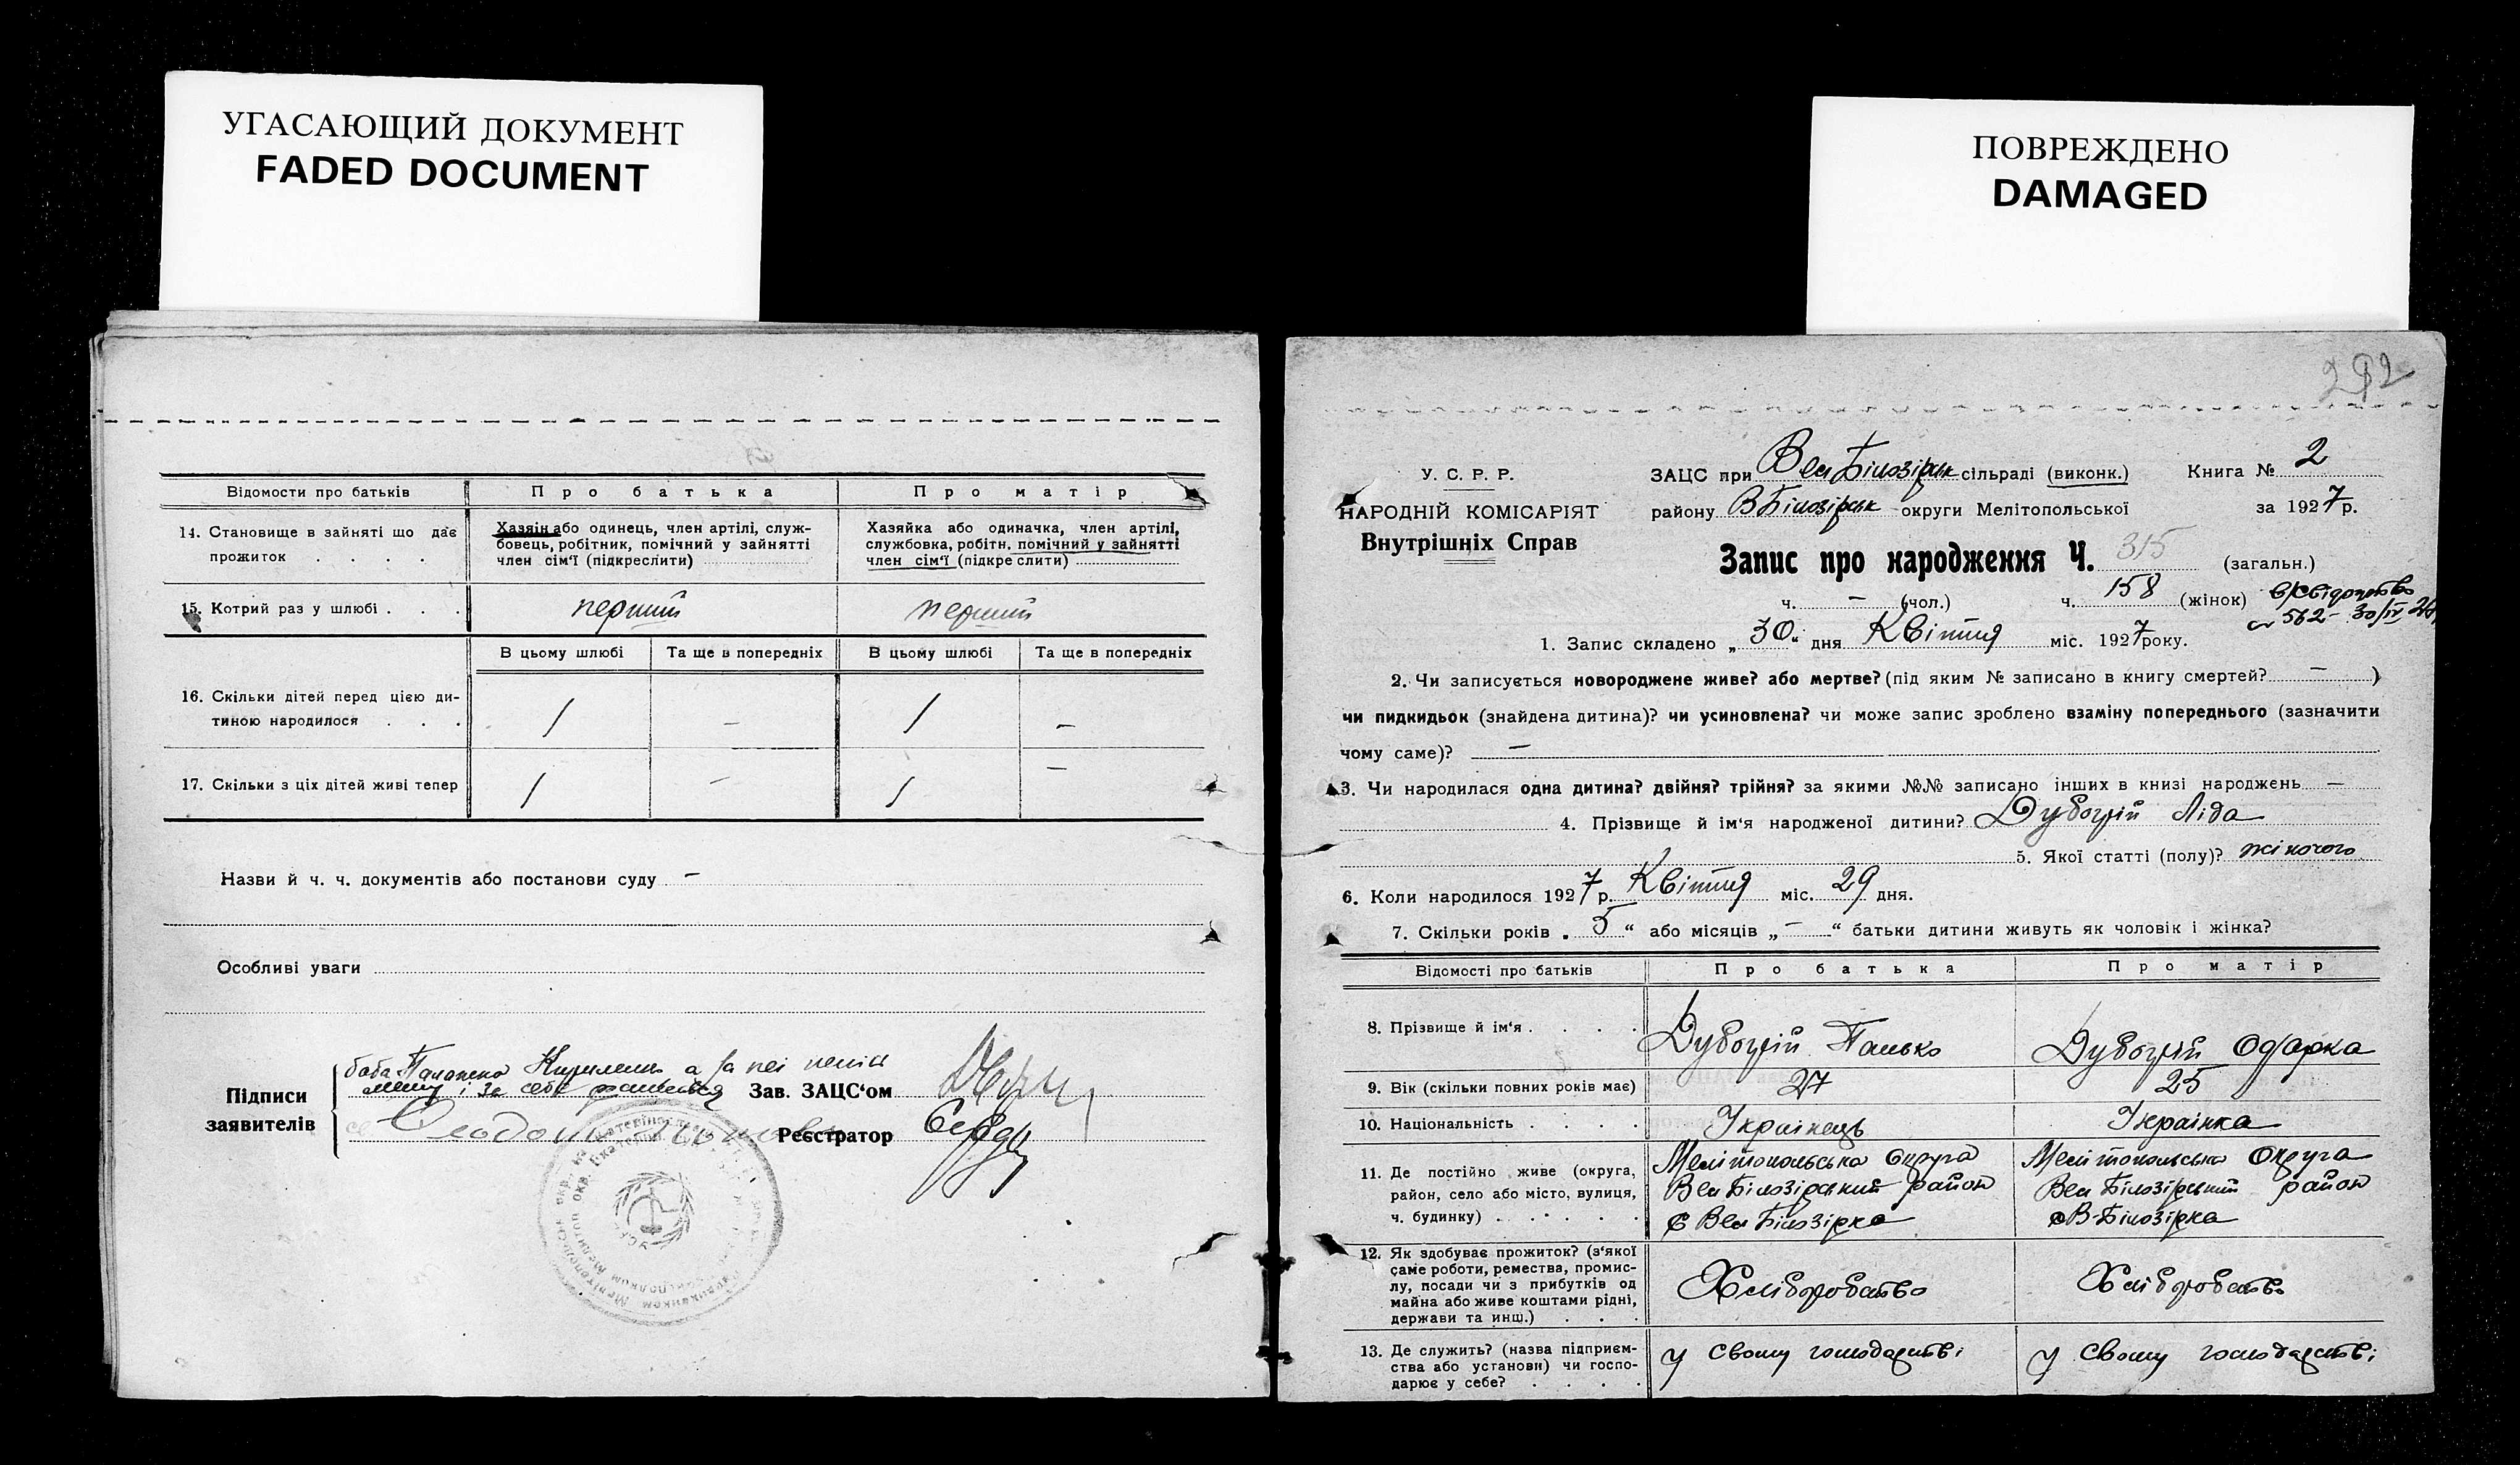 УГАСАЮЩИЙ ДОКУМЕНТ
FADED DOCUMENT
ПОВРЕЖДЕНО
DAMAGED
Відомости про батьків
Про батька
Про матір
14. Становище в зайняті що дає
прожиток . . . .
Хазяїн або одинець, член артілі, служ-
бовець, робітник, помічний у зайнятті
член сім‘ї (підкреслити)
Хазяйка або одиначка, член артілі,
службовка, робітн. помічний у зайнятті
член сім‘ї (підкреслити)
15. Котрий раз у шлюбі . . .
перший
перший
В цьому шлюбі
Та ще в попередніх
В цьому шлюбі
Та ще в попередніх
16. Скільки дітей перед цією ди-
тиною народилося . . .
1 – 1 –
17. Скільки з ціх дітей живі тепер
1 – 1 –
Назви й ч. ч. документів або постанови суду –
Особливі уваги
Підписи
заявителів
баба а за неї
і за себе
Зав. ЗАЦС‘ом
Реєстратор
292
У. С. Р. Р.
НАРОДНІЙ КОМІСАРІЯТ
Внутрішніх Справ
ЗАЦС при Вел Білозірськ сільраді (виконк.)
Книга № 2
району ВБілозірськ округи Мелітопольської
за 1927 р.
Запис про народження Ч. 315 (загальн.)
ч. – (чол.) ч. 158 (жінок)
562 30/IV
1. Запис складено „30“ дня Квітня міс. 1927 року.
2. Чи записується новороджене живе? або мертве? (під яким № записано в книгу смертей? – )
чи пидкидьок (знайдена дитина)? чи усиновлена? чи може запис зроблено взаміну попереднього (зазначити
чому саме)? –
3. Чи народилася одна дитина? двійня? трійня? за якими №№ записано інших в книзі народжень –
4. Прізвище й ім‘я народженої дитини? Дубогрій Ліда
5. Якої статті (полу)? жіночого
6. Коли народилося 1927 р. Квітня міс. 29 дня.
7. Скільки років „5“ або місяців „–“ батьки дитини живуть як чоловік і жінка?
Відомості про батьків
Про батька
Про матір
8. Прізвище й ім‘я . . . .
Дубогрій Панько
Дубогрій Одарка
9. Вік (скільки повних років має)
27
25
10. Національність . . . .
Українець
Українка
11. Де постійно живе (округа,
район, село або місто, вулиця,
ч. будинку) . . . . .
Мелітопольська Округа
Вел Білозірський район
с Вел Білозірка
Мелітопольська Округа
Вел Білозірський район
с В-Білозірка
12. Як здобуває прожиток? (з‘якої
саме роботи, ремества, промис-
лу, посади чи з прибутків од
майна або живе коштами рідні,
держави та инш.) . . .
Хліборобство
Хліборобство
13. Де служить? (назва підприєм-
ства або установи) чи госпо-
дарює у себе? . . . .
у свому господарстві
у свому господарстві